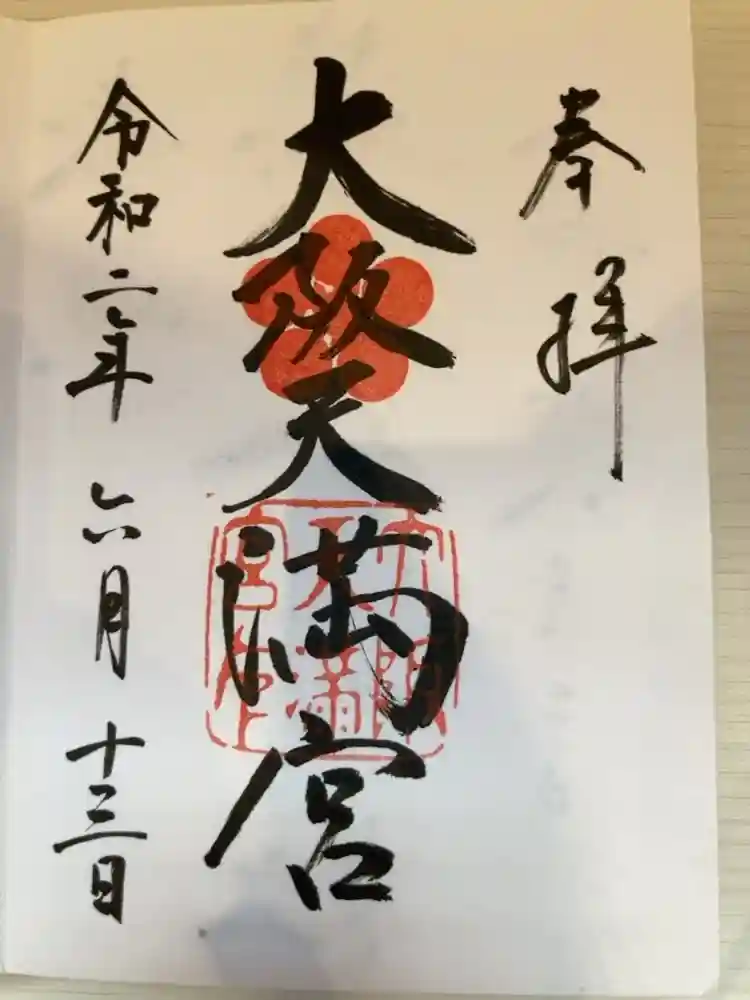 奉拝
大阪天満宮
令和二年 六月 十三日